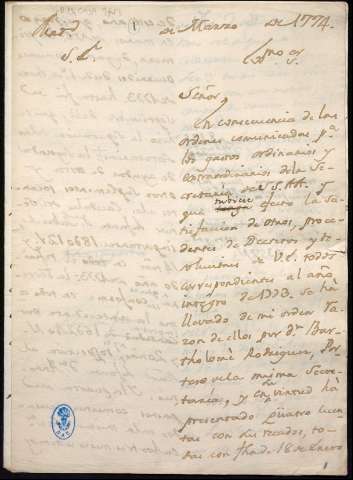 1 de Marzo de 1774.
Señor,
En consecuencia de las
ordenes comunicadas pa.
los gastos ordinarios y
extraordinarios de la Se-
cretaria de S. AA. y
tubiese
que efecto la Sa-
tisfaccion de otros, proce-
dentes de Decretos y re-
soluciones de V.E. todos
correspondientes al año
integro de 1773. se ha
llevado de mi orden ra-
zon de ellos por dn. Bar-
tholomè Rodriguez, Por-
tero de la misma Secre-
taría, y en su virtud ha
presentado quatro cuen-
tas con sus recados, to-
das con fha. de 18 de Enero